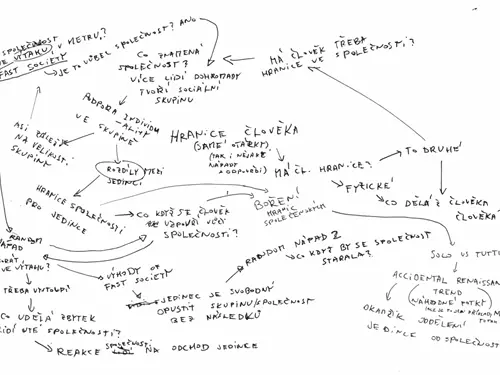 SPOLEČNOST
VE VÝTAHU V METRU?
FAST SOCIETY
JE TO VŮBEC SPOLEČNOST? ANO
CO ZNAMENÁ
SPOLEČNOST?
VÍCE LIDÍ DOHROMADY
TVOŘÍ SOCIÁLNÍ
SKUPINU
MÁ ČLOVĚK TŘEBA
HRANICE VE SPOLEČNOSTI?
PODPORA INDIVIDU
-ALITY
VE SKUPINĚ
ASI ZÁLEŽÍ
NA VELIKOSTI
SKUPINY
HRANICE ČLOVĚKA
(SAMÉ OTÁZKY)
(TAK I NĚJAKÉ
NÁPADY
+ ODPOVĚDI)
MÁ ČL. HRANICE?
TO DRUHÉ
FYZICKÉ
CO DĚLÁ Z ČLOVĚKA
ČLOVĚKA?
ROZDÍLY MEZI
JEDINCI
HRANICE SPOLEČNOSTI
PRO JEDINCE
CO KDYŽ SE ČLOVĚK
VZEPŘE VŮČI
SPOLEČNOSTI?
BOŘENÍ
HRANIC
SPOLEČENSKÝCH
RANDOM
NÁPAD
VE VÝTAHU?
TŘEBA
VÝHODY OF
FAST SOCIETY
RANDOM NÁPAD 2
CO KDYBY SE SPOLEČNOST
STARALA?
JEDINEC JE SVOBODNÝ
OPUSTIT SKUPINU/SPOLEČNOST
BEZ NÁSLEDKŮ
CO UDĚLÁ ZBYTEK
LIDÍ VE SPOLEČNOSTI?
REAKCE SPOLEČNOSTI NA ODCHOD JEDINCE
SOLO VS TUTTI
ACCIDENTAL RENAISSANCE
TREND
OKAMŽIK ODDĚLENÍ
JEDINCE OD SPOLEČNOSTI